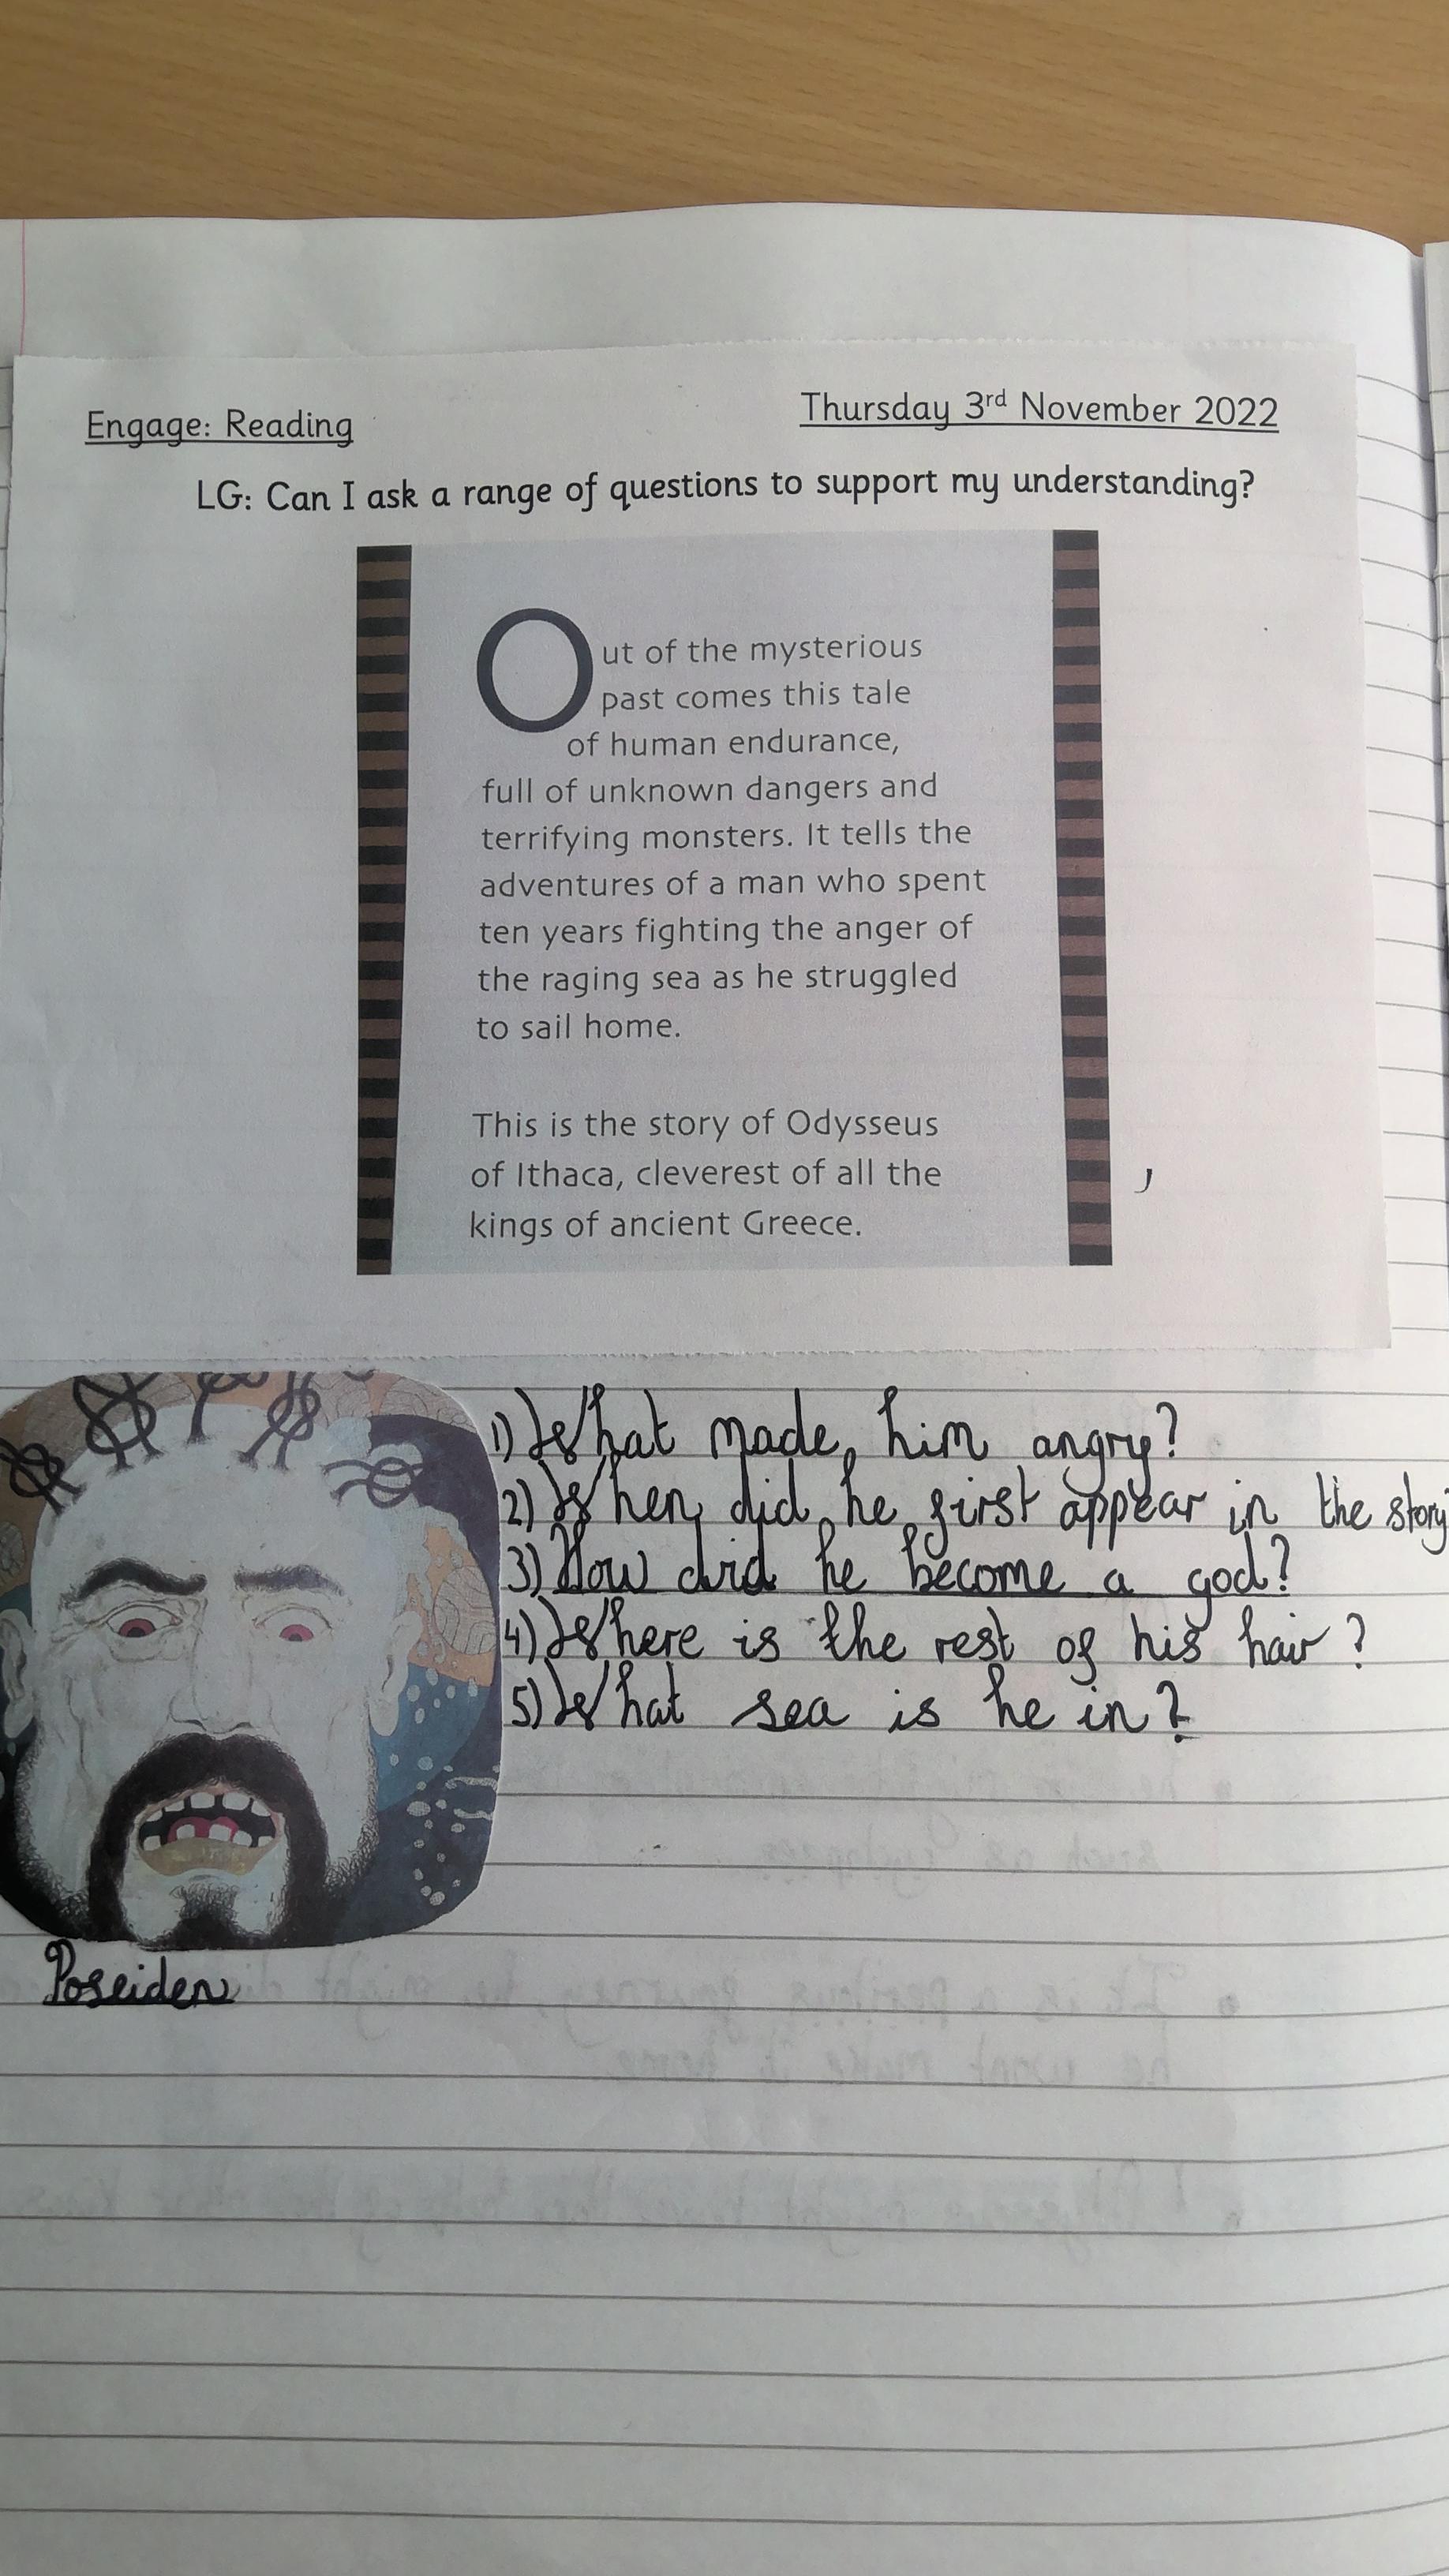 Engage: Reading
Thursday 3rd November 2022
LG: Can I ask a range of questions to support my understanding?
Out of the mysterious
past comes this tale
of human endurance,
full of unknown dangers and
terrifying monsters. It tells the
adventures of a man who spent
ten years fighting the anger of
the raging sea as he struggled
to sail home.
This is the story of Odysseus
of Ithaca, cleverest of all the
kings of ancient Greece.
1) What made him angry?
2) When did he first appear in the story
3) How did he become a god?
4) Where is the rest of his hair?
5) What sea is he in?
Poseiden